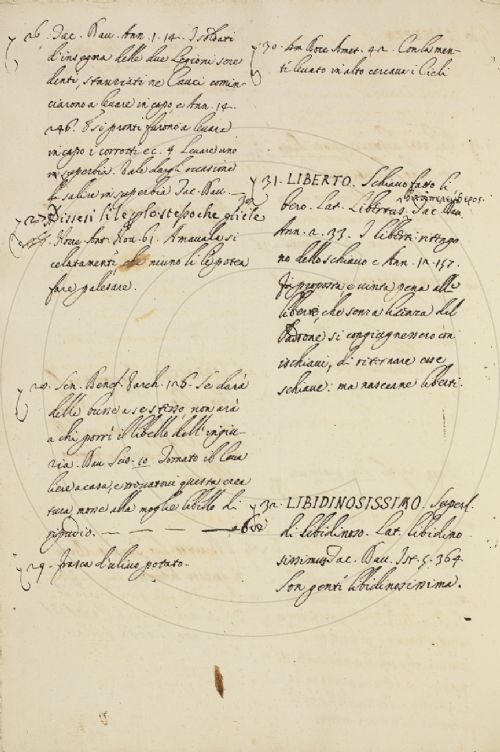 26. Tac. Dav. Ann. 1. 14. I soldati
d'insegna delle due Legioni
ne Cauci comin
ciarono a levare in capo e Ann. 14.
246. E si pronti furono a levare
in capo i corrotti ec. 4 Levare uno
in superbia. Dale dargli occasione
di salire in superbia Tac. Dav.
27. Dissesi
28. Nov. Ant. Nov. 61. Amavala si
celatamente che niuno li le potea
fare palesare.
Sen. Benef. Varch. 126. Se darà
delle busse a se stesso non arà
a chi porri il libello dell'ingiu
ria. Dav. Scis. 10 Tornato il Cava
liere a casa, e questa crea
tura, morse alla moglie libello di
ripudio.
29. frasca d'ulivo potato.
30. Am. Bocc. Amet. 42. Con la men
te levato in alto cercava i Cieli
31. LIBERTO. Schiavo fatto li
bero. Lat. Libertus. Tac. Dav.
Ann. 2. 33. I liberti ritengo
no dello schiavo e Ann. 12. 157.
Fu proposta e vinta pena alle
che senza licenza del
Padrone si congiugnessero con
ischiavi, di ritornare esse
schiave: ma nascerne liberti.
32. LIBIDINOSISSIMO. Superl.
di libidinoso. Lat. libidino
sissimus Tac. Dav. Ist. 5. 364
Son genti libidinosissima.